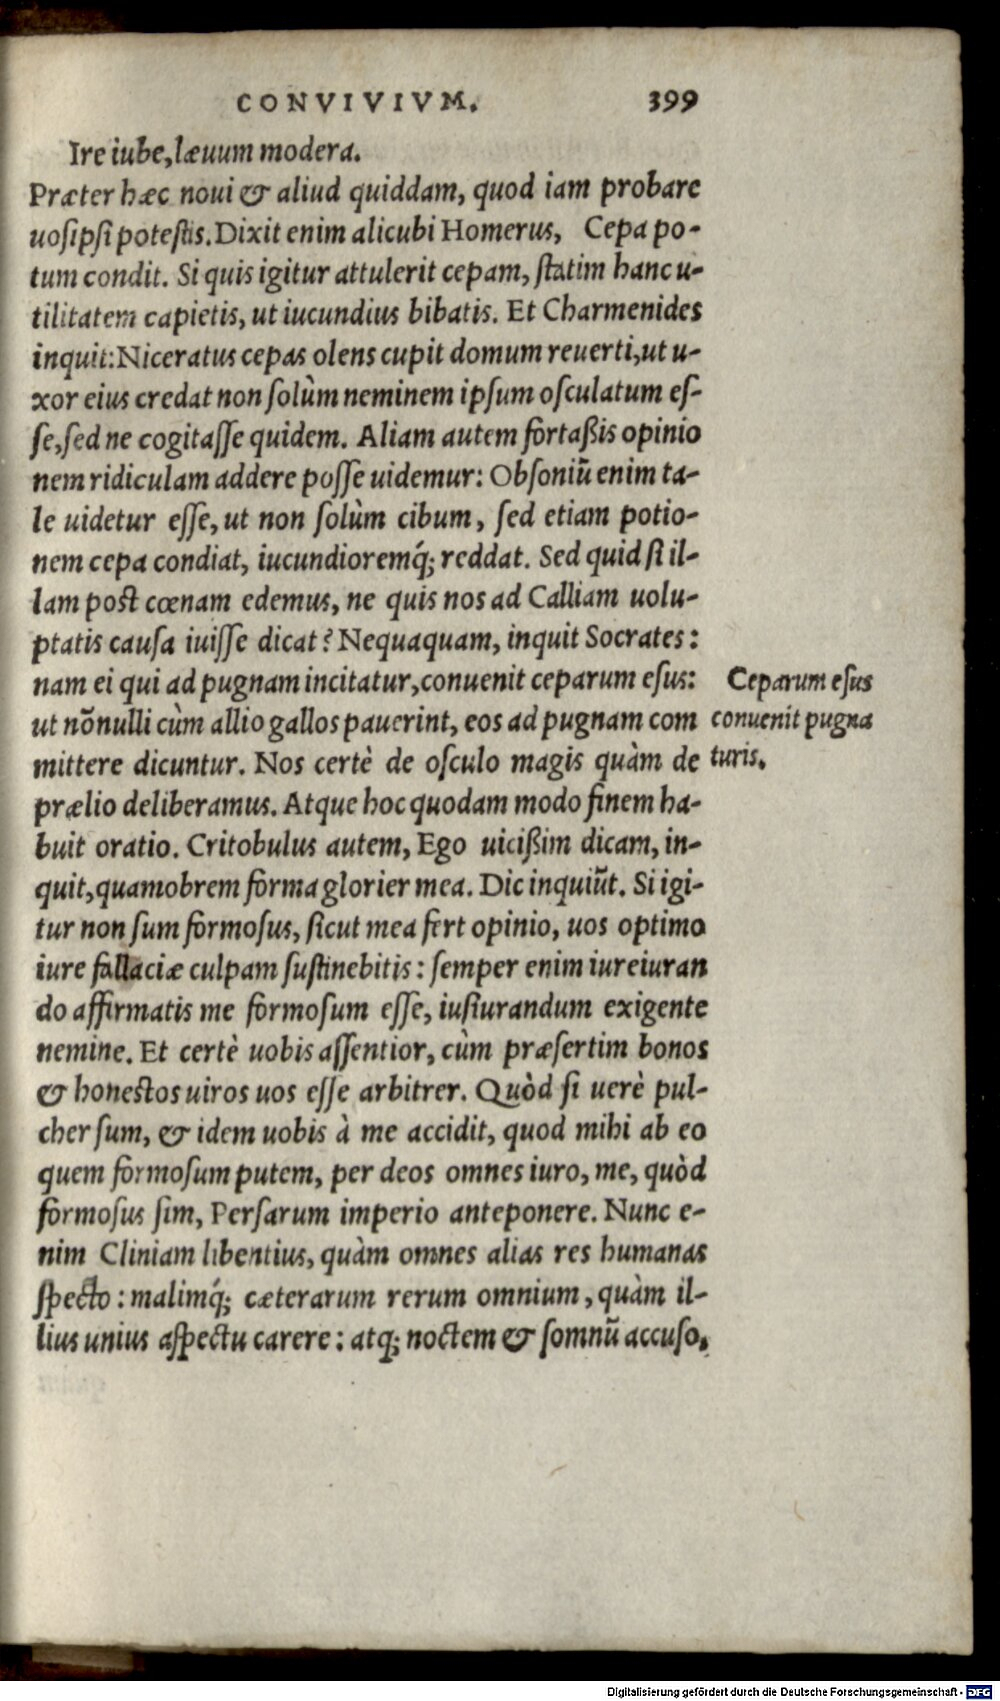 CONVIVIVM. 399
Ire iube, læuum modera.
Præter hæc noui & aliud quiddam, quod iam probare
uosipsi potestis. Dixit enim alicubi Homerus, Cepa po-
tum condit. Si quis igitur attulerit cepam, statim hanc u-
tilitatem capietis, ut iucundius bibatis. Et Charmenides
inquit: Niceratus cepas olens cupit domum reuerti, ut u-
xor eius credat non solùm neminem ipsum osculatum es-
se, sed ne cogitasse quidem. Aliam autem fortaßis opinio
nem ridiculam addere posse uidemur: Obsoniũ enim ta-
le uidetur esse, ut non solùm cibum, sed etiam potio-
nem cepa condiat, iucundioremq́; reddat. Sed quid si il-
lam post cœnam edemus, ne quis nos ad Calliam uolu-
ptatis causa iuisse dicat? Nequaquam, inquit Socrates:
nam ei qui ad pugnam incitatur, conuenit ceparum esus:
ut nõnulli cùm allio gallos pauerint, eos ad pugnam com
mittere dicuntur. Nos certè de osculo magis quàm de
prælio deliberamus. Atque hoc quodam modo finem ha-
buit oratio. Critobulus autem, Ego uicißim dicam, in-
quit, quamobrem forma glorier mea. Dic inquiũt. Si igi-
tur non sum formosus, sicut mea fert opinio, uos optimo
iure fallaciæ culpam sustinebitis: semper enim iureiuran
do affirmatis me formosum esse, iusiurandum exigente
nemine. Et certè uobis assentior, cùm præsertim bonos
& honestos uiros uos esse arbitrer. Quòd si uerè pul-
cher sum, & idem uobis à me accidit, quod mihi ab eo
quem formosum putem, per deos omnes iuro, me, quòd
formosus sim, Persarum imperio anteponere. Nunc e-
nim Cliniam libentius, quàm omnes alias res humanas
specto: malimq́; cæterarum rerum omnium, quàm il-
lius unius aspectu carere: atq; noctem & somnũ accuso,
Ceparum esus
conuenit pugna
turis.
Digitalisierung gefördert durch die Deutsche Forschungsgemeinschaft - DFG